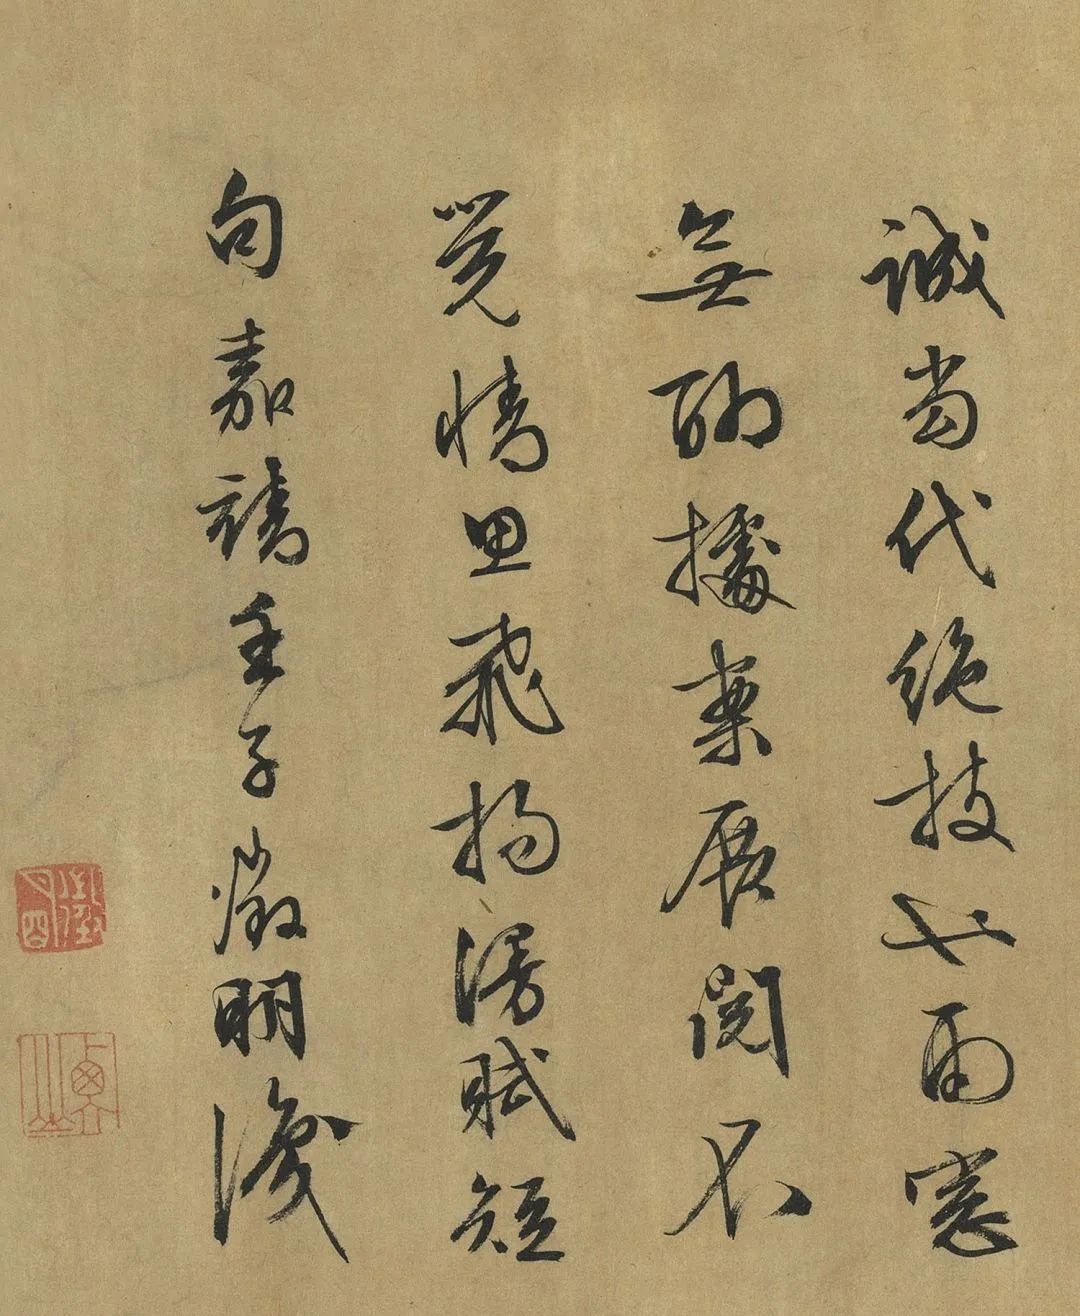 誠當代絕技也雨窗
無聊據案展閱不
覺情思飛揚漫賦短
句嘉靖壬子徵明識